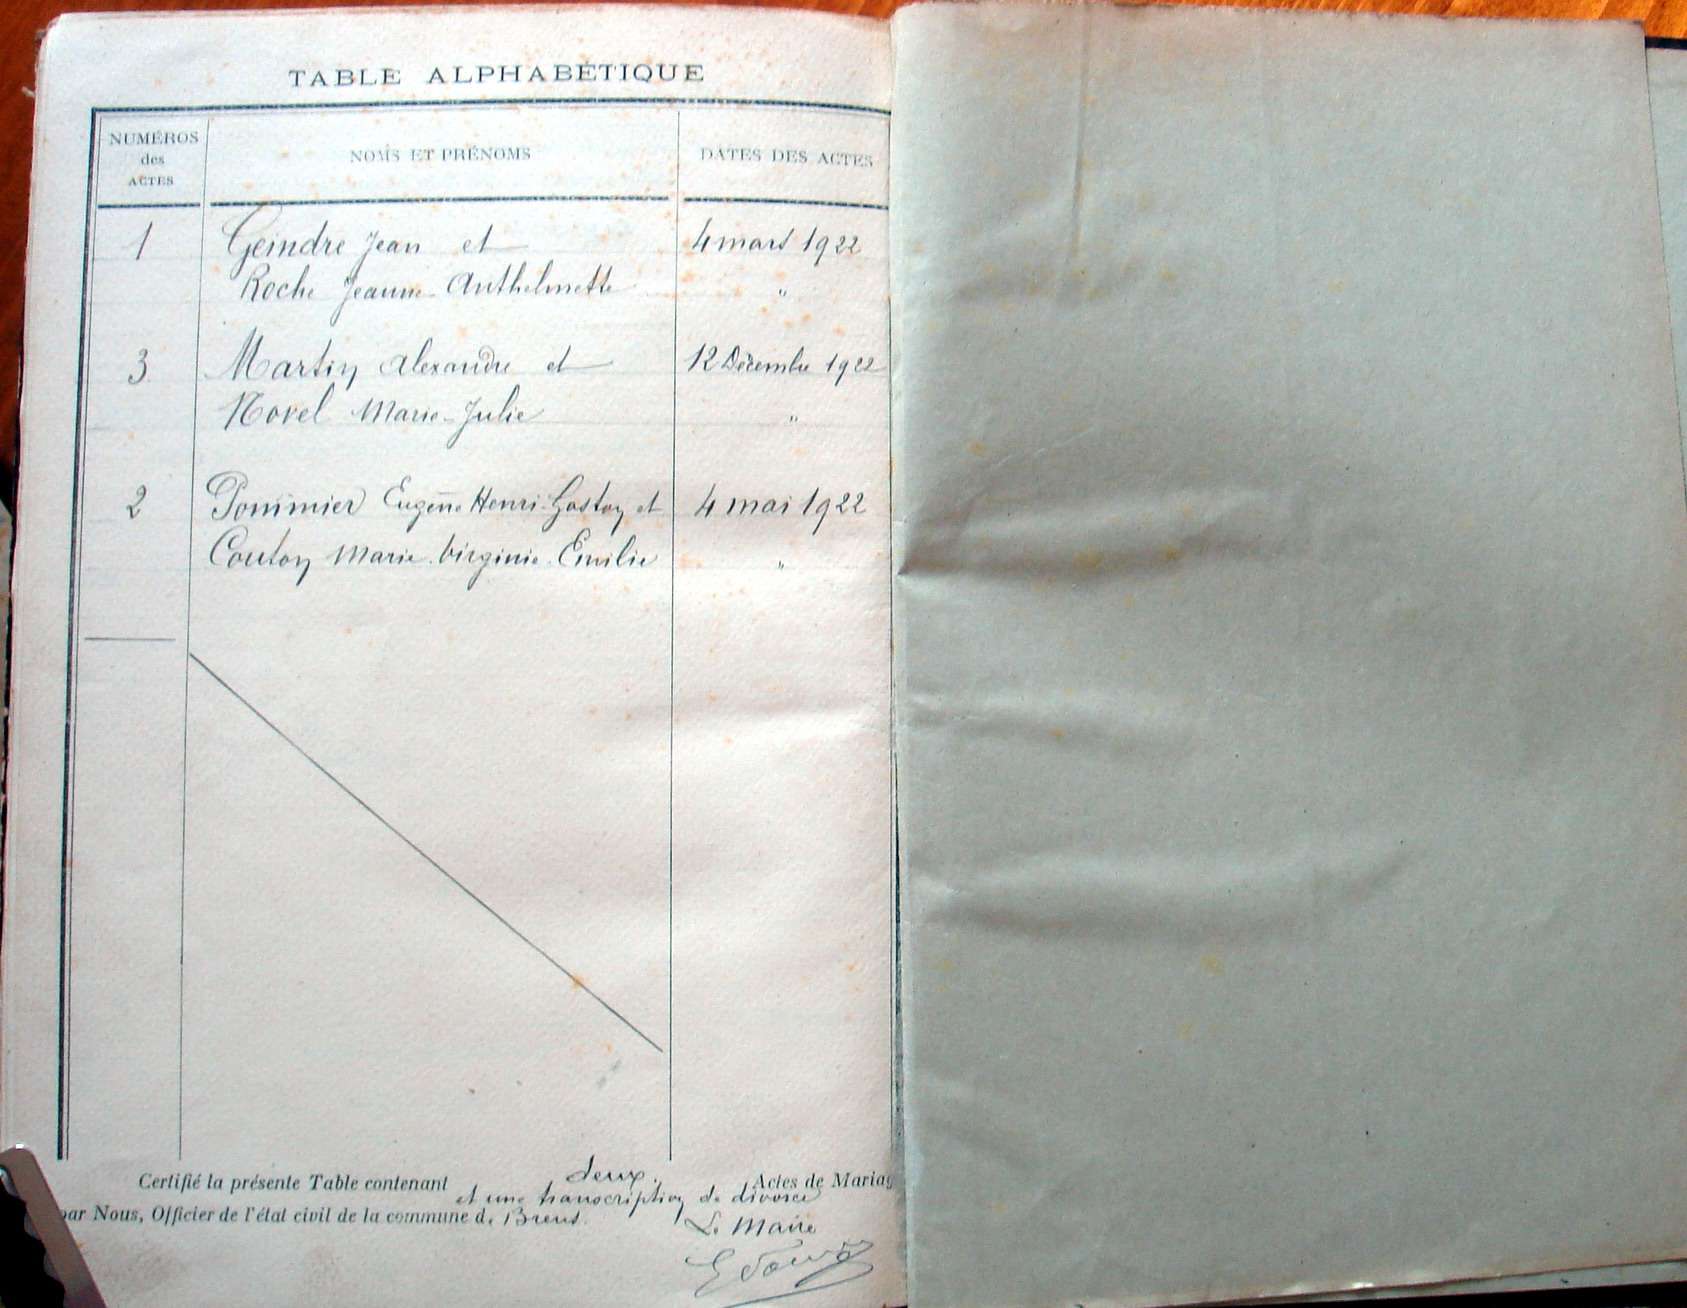 TABLE ALPHABÉTIQUE
NUMÉROS des ACTES NOMS ET PRÉNOMS DATES DES ACTES
1 Geindre Jean et 4 mars 1922
Roche Jeanne-Anthelmette "
3 Martin Alexandre et 12 Décembre 1922
Novel Marie-Julie "
2 Pommier Eugène Henri-Gaston et 4 mai 1922
Couton Marie-Virginie-Emilie "
Certifié la présente Table contenant deux. Actes de Mariag
et une transcription de divorce
par Nous, Officier de l'état civil de la commune de Brens.
Le Maire